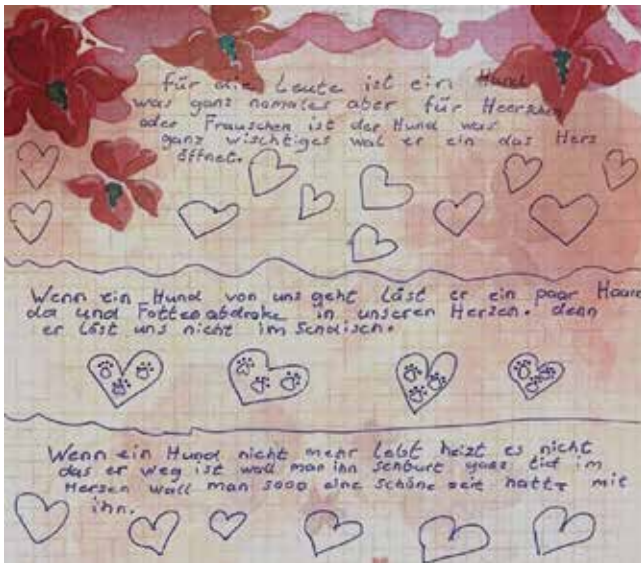 für die Leute ist ein Hund
was ganz nomales aber für Heerschen
oder Frauschen ist der Hund was
ganz wischtiges wal er ein das Hers
öffnet.
Wenn ein Hund von uns geht läst er ein paar Haare
da und Fottenabdroke in unseren Herzen. denn
er läst uns nicht im Schdisch.
Wenn ein Hund nicht mehr lebt heizt es nicht
das er weg ist wall man ihn schburt ganz tief im
Herzen wall man sooo eine schöne zeit hatte mit
ihn.